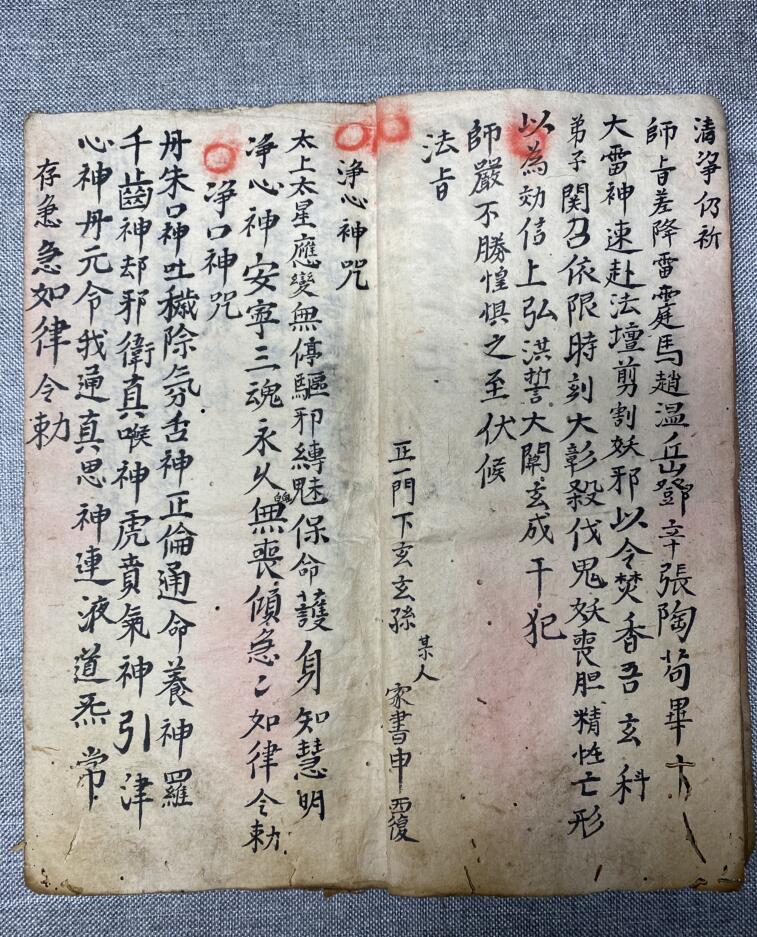 清寧仍祈
師旨差降雷霆馬趙温岳鄧辛張陶苟畢十
大雷神速赴法壇剪割妖邪以令焚香吾玄科
弟子関召依限時刻大彰殺伐鬼妖喪胆精性亡形
以為効信上弘洪誓大闡玄成干犯
師嚴不勝惶惧之至伏候
法旨
正一門下玄玄孫某人家書申西復
浄心神咒
太上太星應變無停驅邪縛魅保命護身知慧明
浄心神安寧三魂永久魄無喪傾急〻如律令勅
浄口神咒
丹朱口神吐穢除氛舌神正倫通命養神羅
千齒神却邪衛真喉神虎賁氣神引津
心神丹元令我通真思神連液道炁常
存急急如律令勅